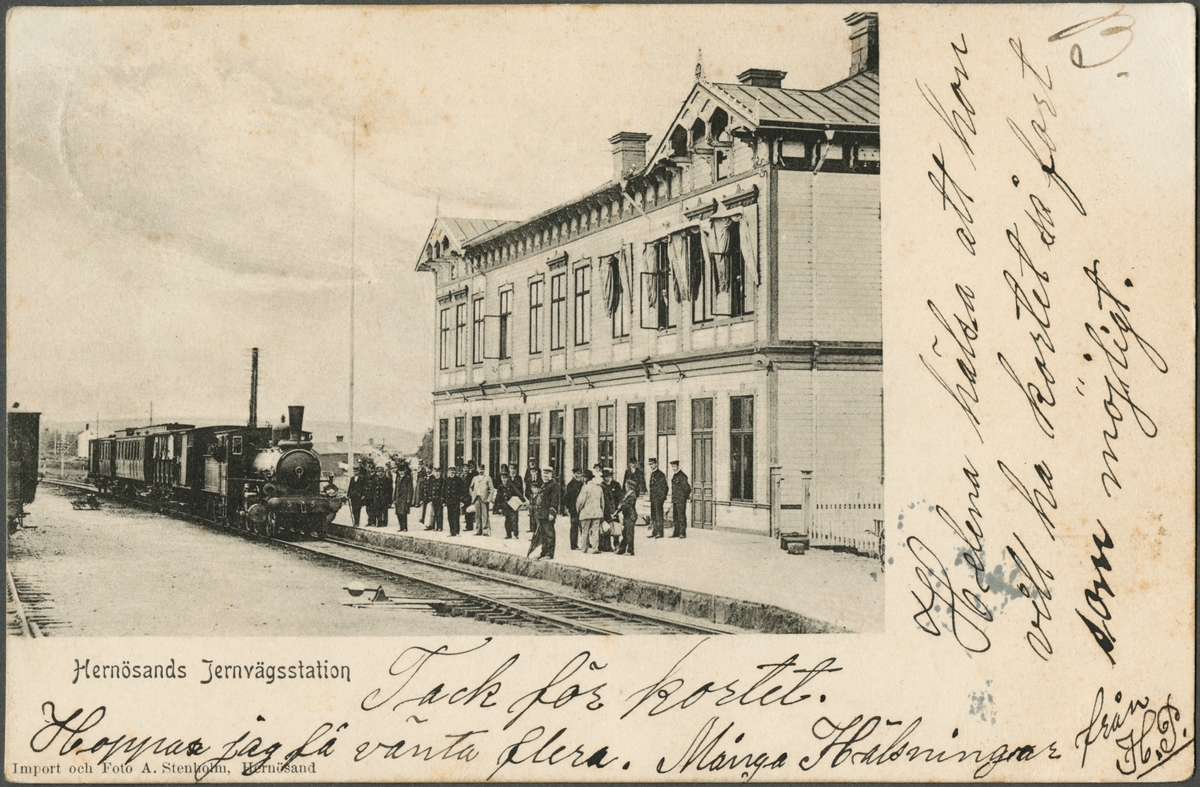 Hernösands Jernvägsstation
Tack för kortet.
Hoppas jag få vänta flera. Många Hälsningar
från
H.P.
Import och Foto A. Stenholm, Hernösand
Helena hälsa att hon
vill ha kortet så fort
som möjligt.